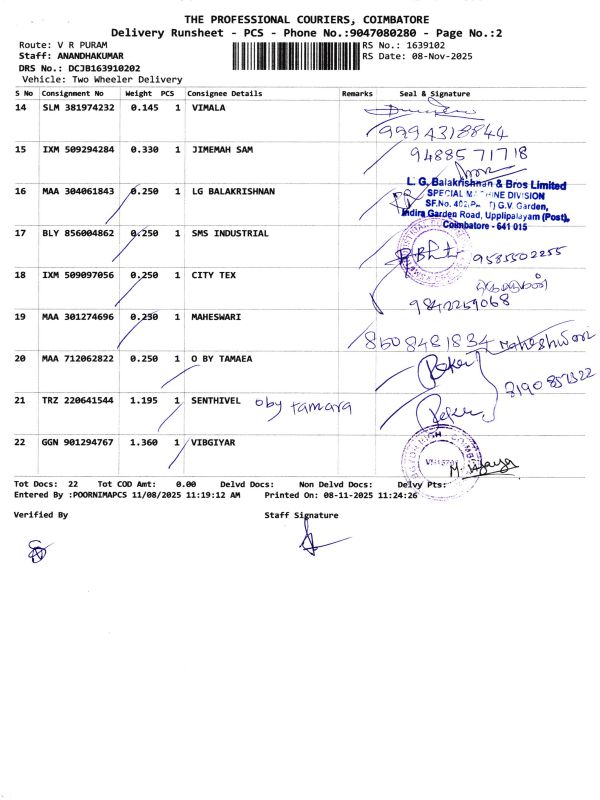 THE PROFESSIONAL COURIERS, COIMBATORE
Delivery Runsheet - PCS - Phone No.:9047080280 - Page No.:2
Route: V R PURAM
RS No.: 1639102
Staff: ANANDHAKUMAR
RS Date: 08-Nov-2025
DRS No.: DCJB163910202
Vehicle: Two Wheeler Delivery
S No Consignment No Weight PCS Consignee Details Remarks Seal & Signature
14 SLM 381974232 0.145 1 VIMALA
9994318844
15 IXM 509294284 0.330 1 JIMEMAH SAM
9488571718
16 MAA 304061843 0.250 1 LG BALAKRISHNAN
L. G. Balakrishnan & Bros Limited
SPECIAL MACHINE DIVISION
G.V. Garden,
Indira Garden Road, Upplipalayam (Post),
Coimbatore - 641 015
17 BLY 856004862 0.250 1 SMS INDUSTRIAL
9585502255
18 IXM 509097056 0.250 1 CITY TEX
9842259068
19 MAA 301274696 0.230 1 MAHESWARI
8508481834 Maheshwari
20 MAA 712062822 0.250 1 O BY TAMAEA
8190857322
21 TRZ 220641544 1.195 1 SENTHIVEL Oby tamara
22 GGN 901294767 1.360 1 VIBGIYAR
M. Vijaya
Tot Docs: 22 Tot COD Amt: 0.00 Delvd Docs: Non Delvd Docs: Delvy Pts:
Entered By :POORNIMAPCS 11/08/2025 11:19:12 AM Printed On: 08-11-2025 11:24:26
Verified By
Staff Signature